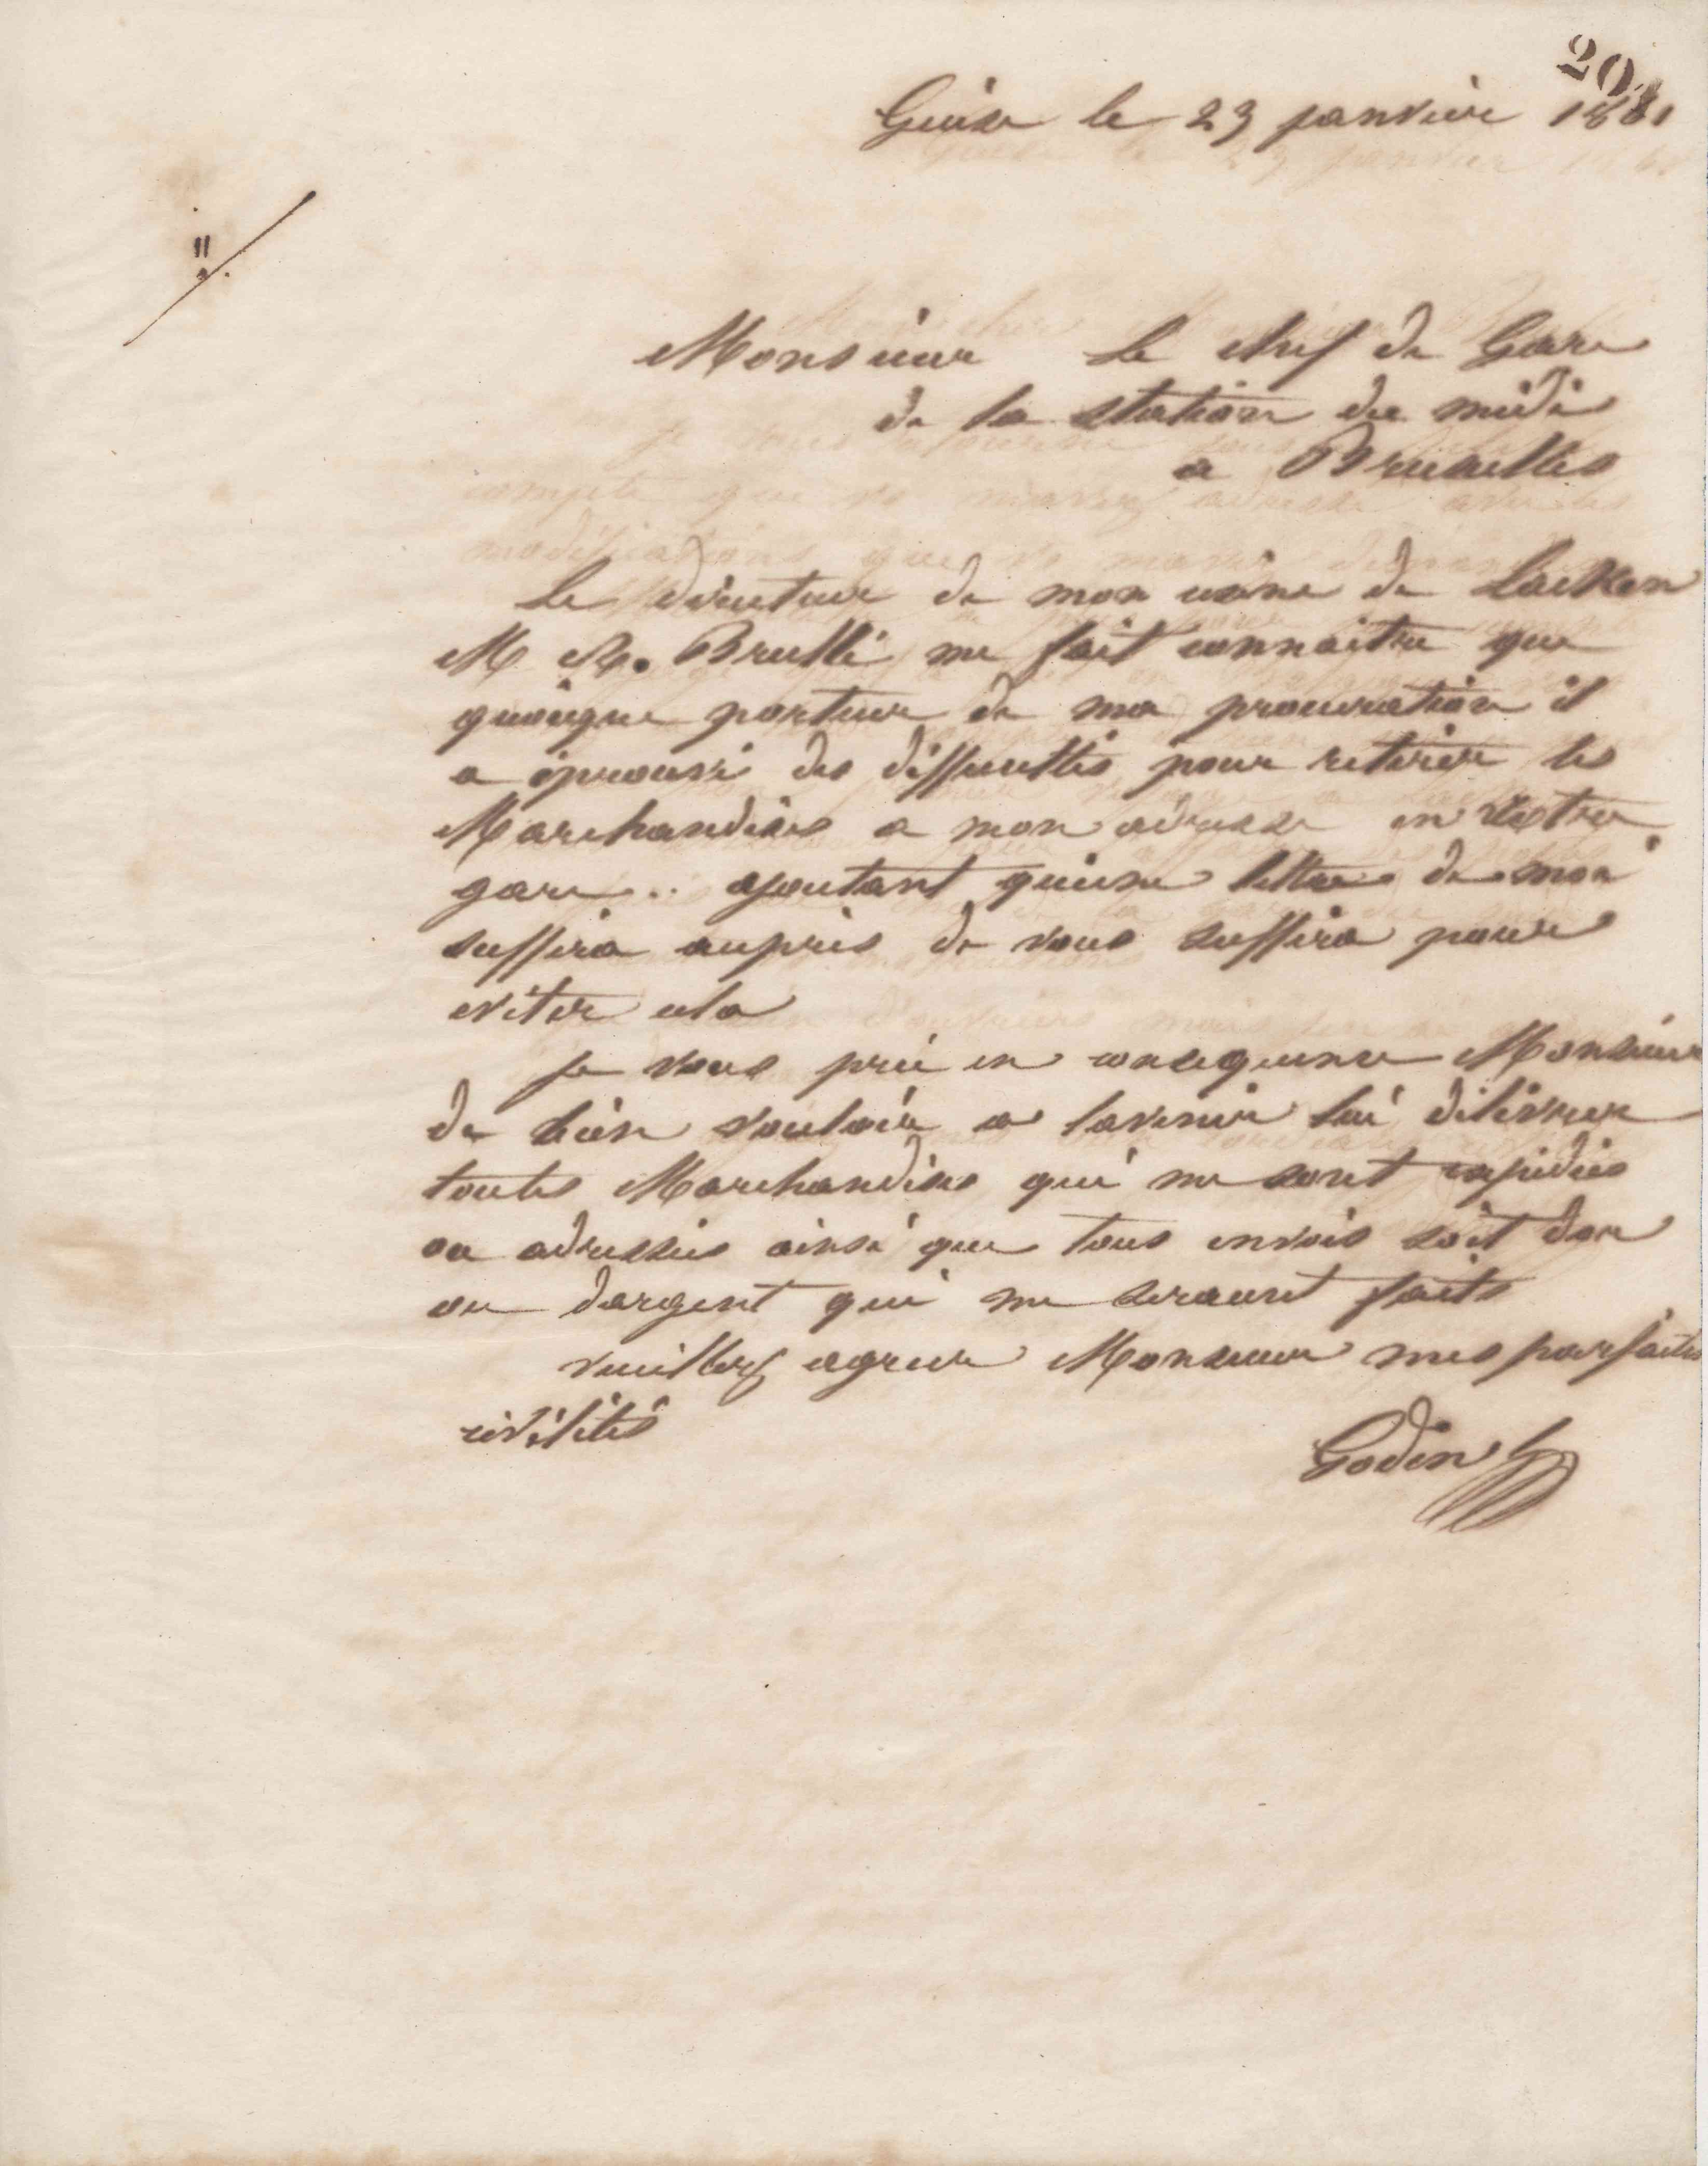 201
Guise le 23 janvier 1861
Monsieur Le chef de Gare
de la station du midi
a Bruxelles
Le directeur de mon usine de Laeken
M Brullé me fait connaitre que
quoique porteur de ma procuration il
a éprouvé des difficultés pour retirer les
Marchandises a mon adresse en votre
gare.. ajoutant qu'une lettre de moi
suffira aupres de vous suffira pour
eviter cela
Je vous prie en consequence Monsieur
de bien vouloir a lavenir lui délivrer
toutes Marchandises qui me sont expediées
ou adressées ainsi que tous envois soit dor
ou dargent qui me seraient faits
veuillez agreer Monsieur mes parfaites
civilités
Godin